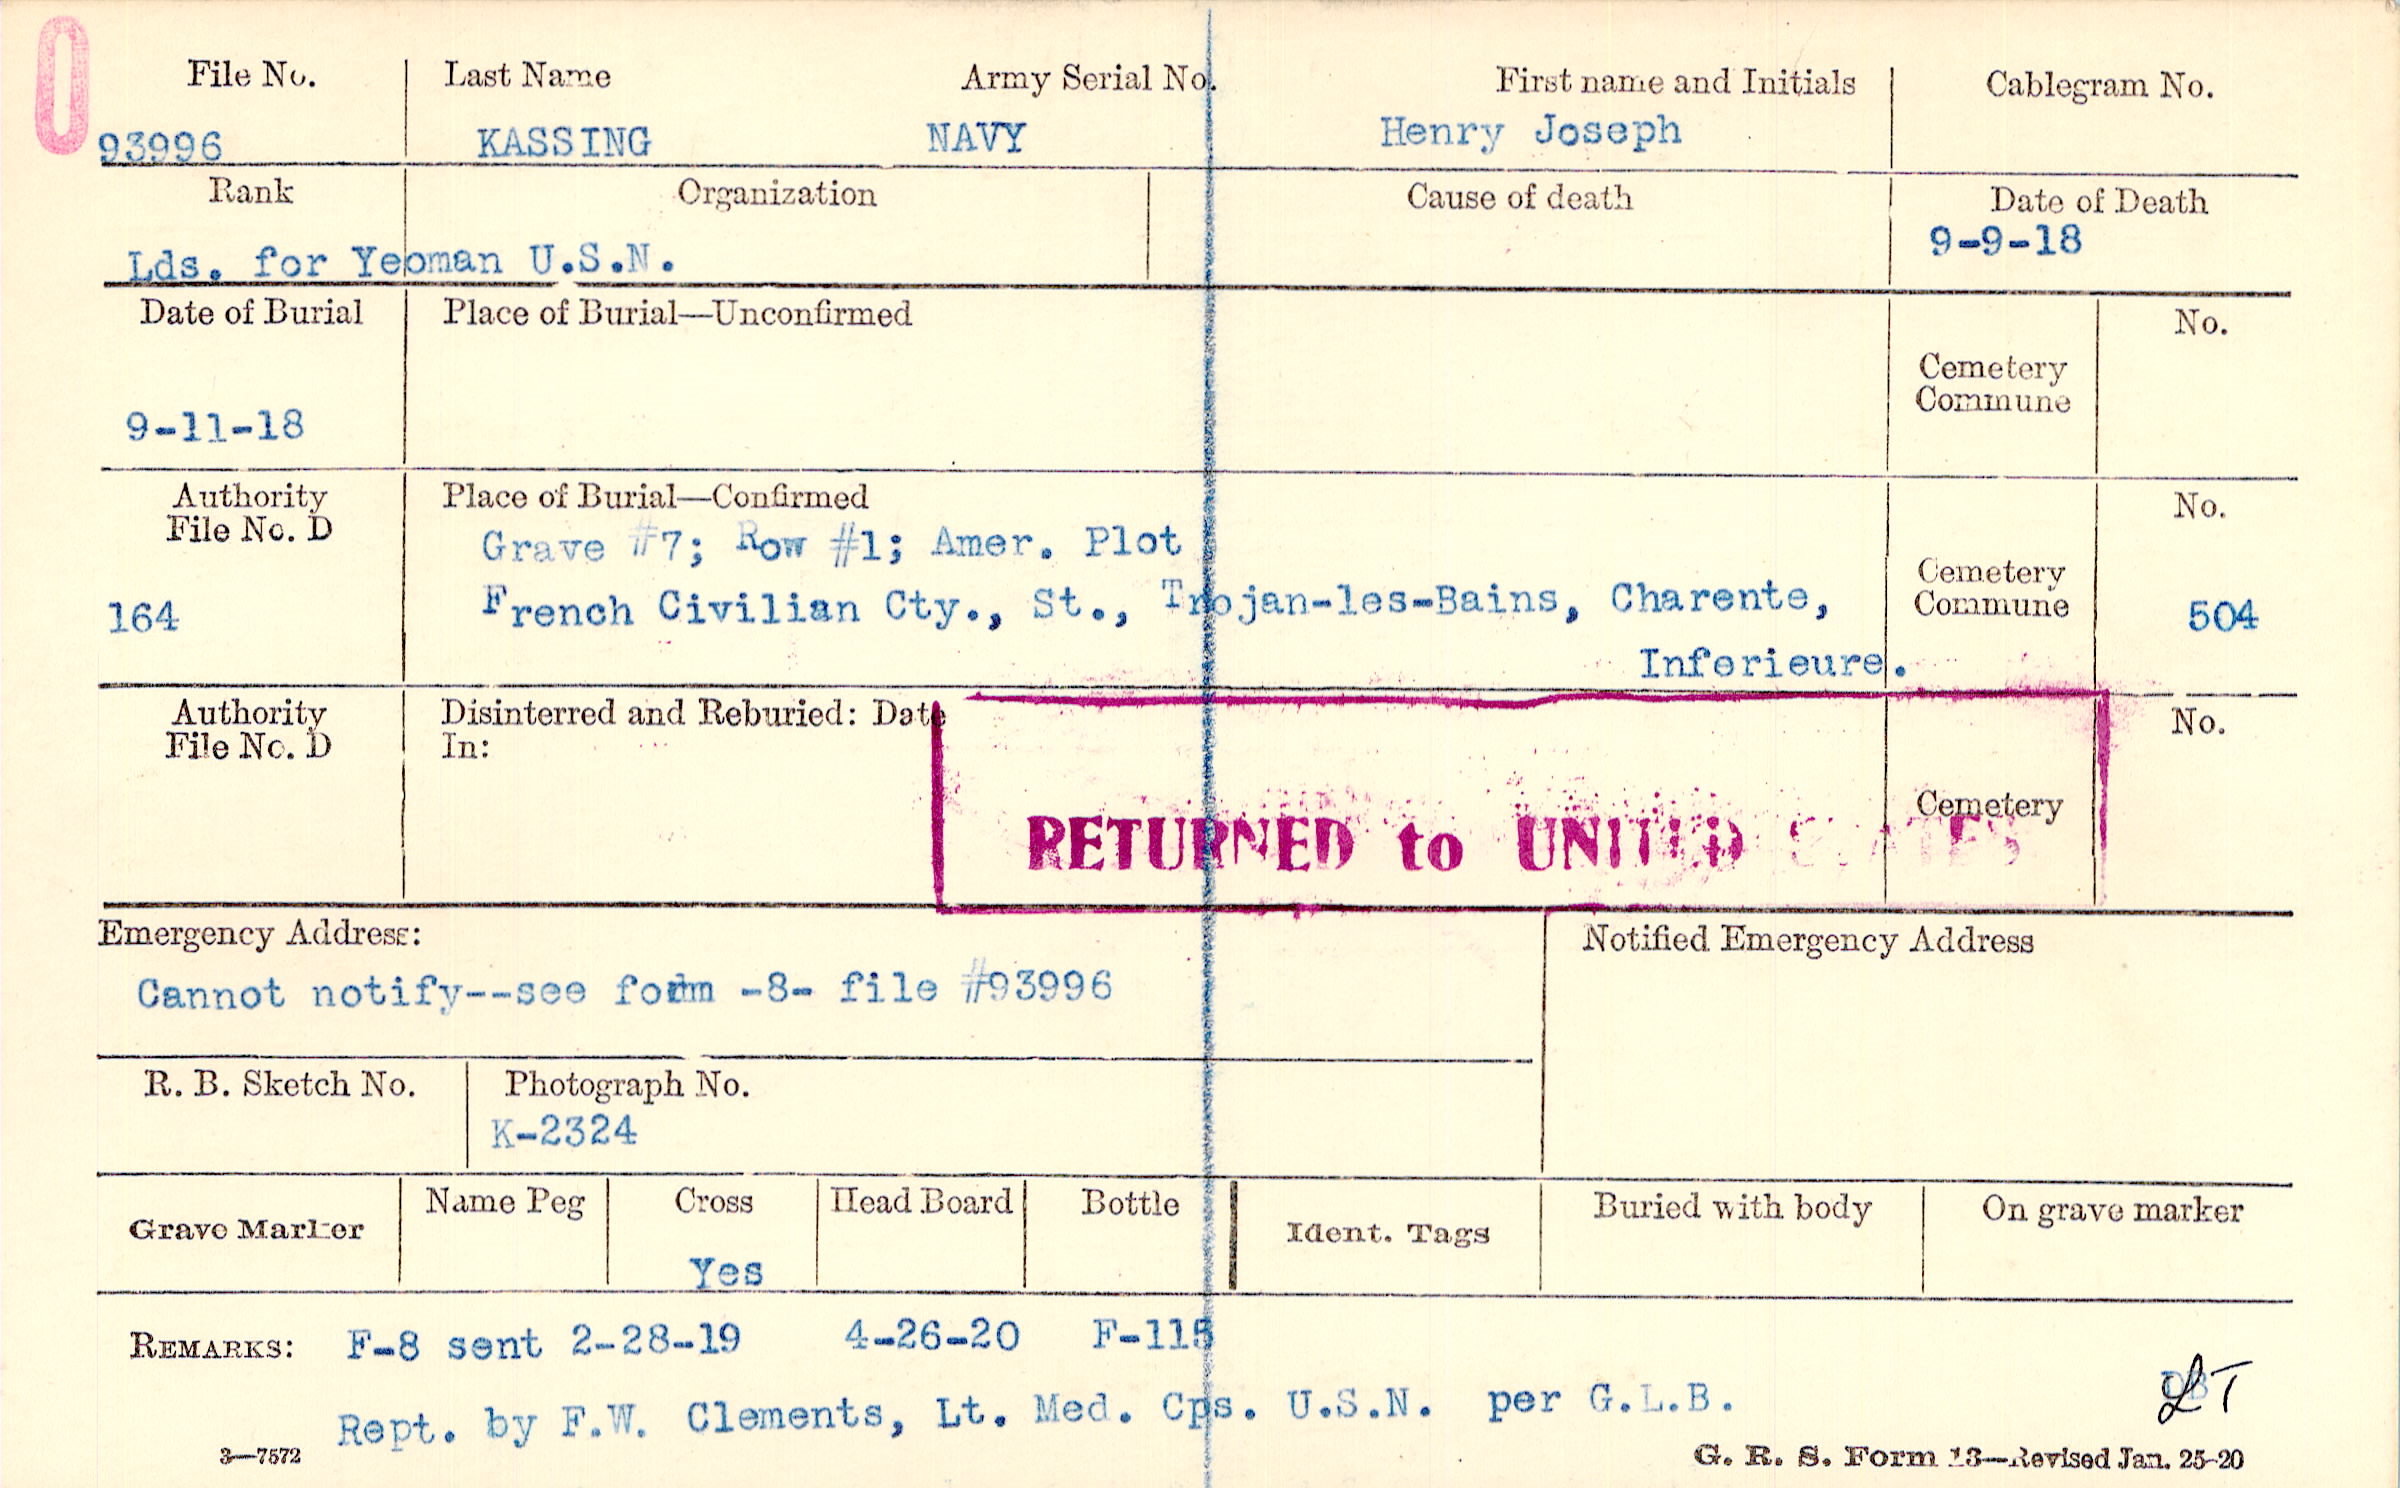 0
File No. Last Name Army Serial No. First name and Initials Cablegram No.
93996 KASSING NAVY Henry Joseph
Rank Organization Cause of death Date of Death
Lds. for Yeoman U.S.N. 9-9-18
Date of Burial Place of Burial—Unconfirmed No.
Cemetery
Commune
9-11-18
Authority Place of Burial—Confirmed No.
File No. D
Grave #7; Row #1; Amer. Plot
164 French Civilian Cty., St., Trojan-les-Bains, Charente, Cemetery
Commune 504
Inferieure.
Authority Disinterred and Reburied: Date No.
File No. D In:
Cemetery
RETURNED to UNITED STATES
Emergency Address: Notified Emergency Address
Cannot notify--see form -8- file #93996
R. B. Sketch No. Photograph No.
K-2324
Grave Marker Name Peg Cross Head Board Bottle Ident. Tags Buried with body On grave marker
Yes
REMARKS: F-8 sent 2-28-19 4-26-20 F-115
Rept. by F.W. Clements, Lt. Med. Cps. U.S.N. per G.L.B. LT
3—7572 G. R. S. Form 13—Revised Jan. 25-20